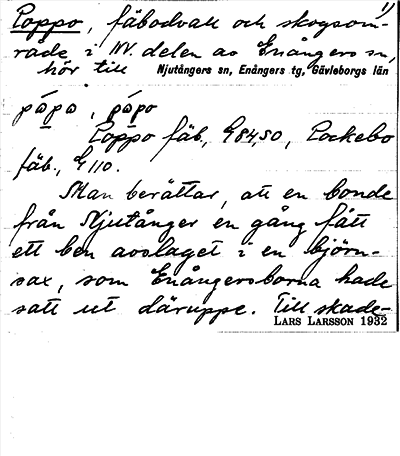 1)
Poppo, fäbodvall och skogsom-
råde i NV. delen av Enångers sn,
hör till Njutångers sn, Enångers tg, Gävleborgs län
pópo, pópo
Poppo fäb., G84,50, Lockebo
fäb., G110.
Man berättar, att en bonde
från Njutånger en gång fått
ett ben avslaget i en björn-
sax, som Enångersborna hade
satt ut däruppe. Till skade-
LARS LARSSON 1932